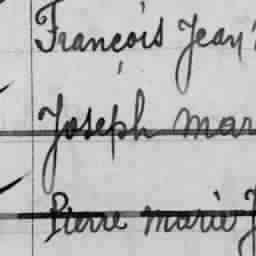 François Jean
Joseph mar
Pierre marie J